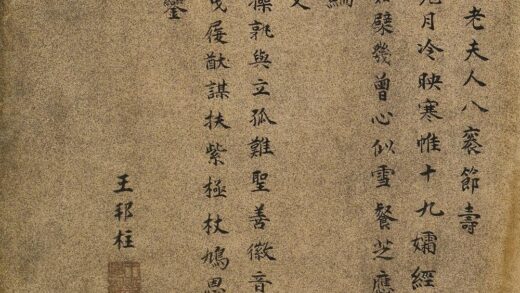 老夫人八袠節壽
月冷映寒帷十九孀經
檗幾曾心似雪餐芝應
操孰與立孤難聖善徽音
屐猷謀扶紫極杖鳩恩
王邦柱